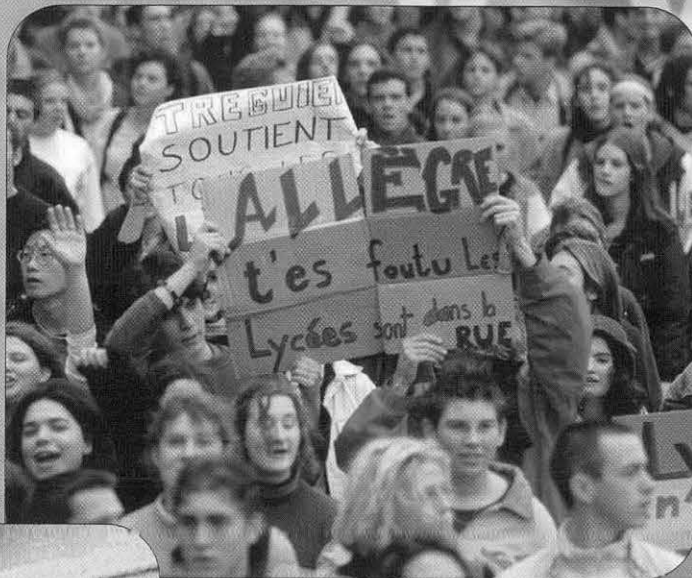 TREGUIER
SOUTIENT
ALLÈGRE
t'es foutu Les
Lycées sont dans la
RUE